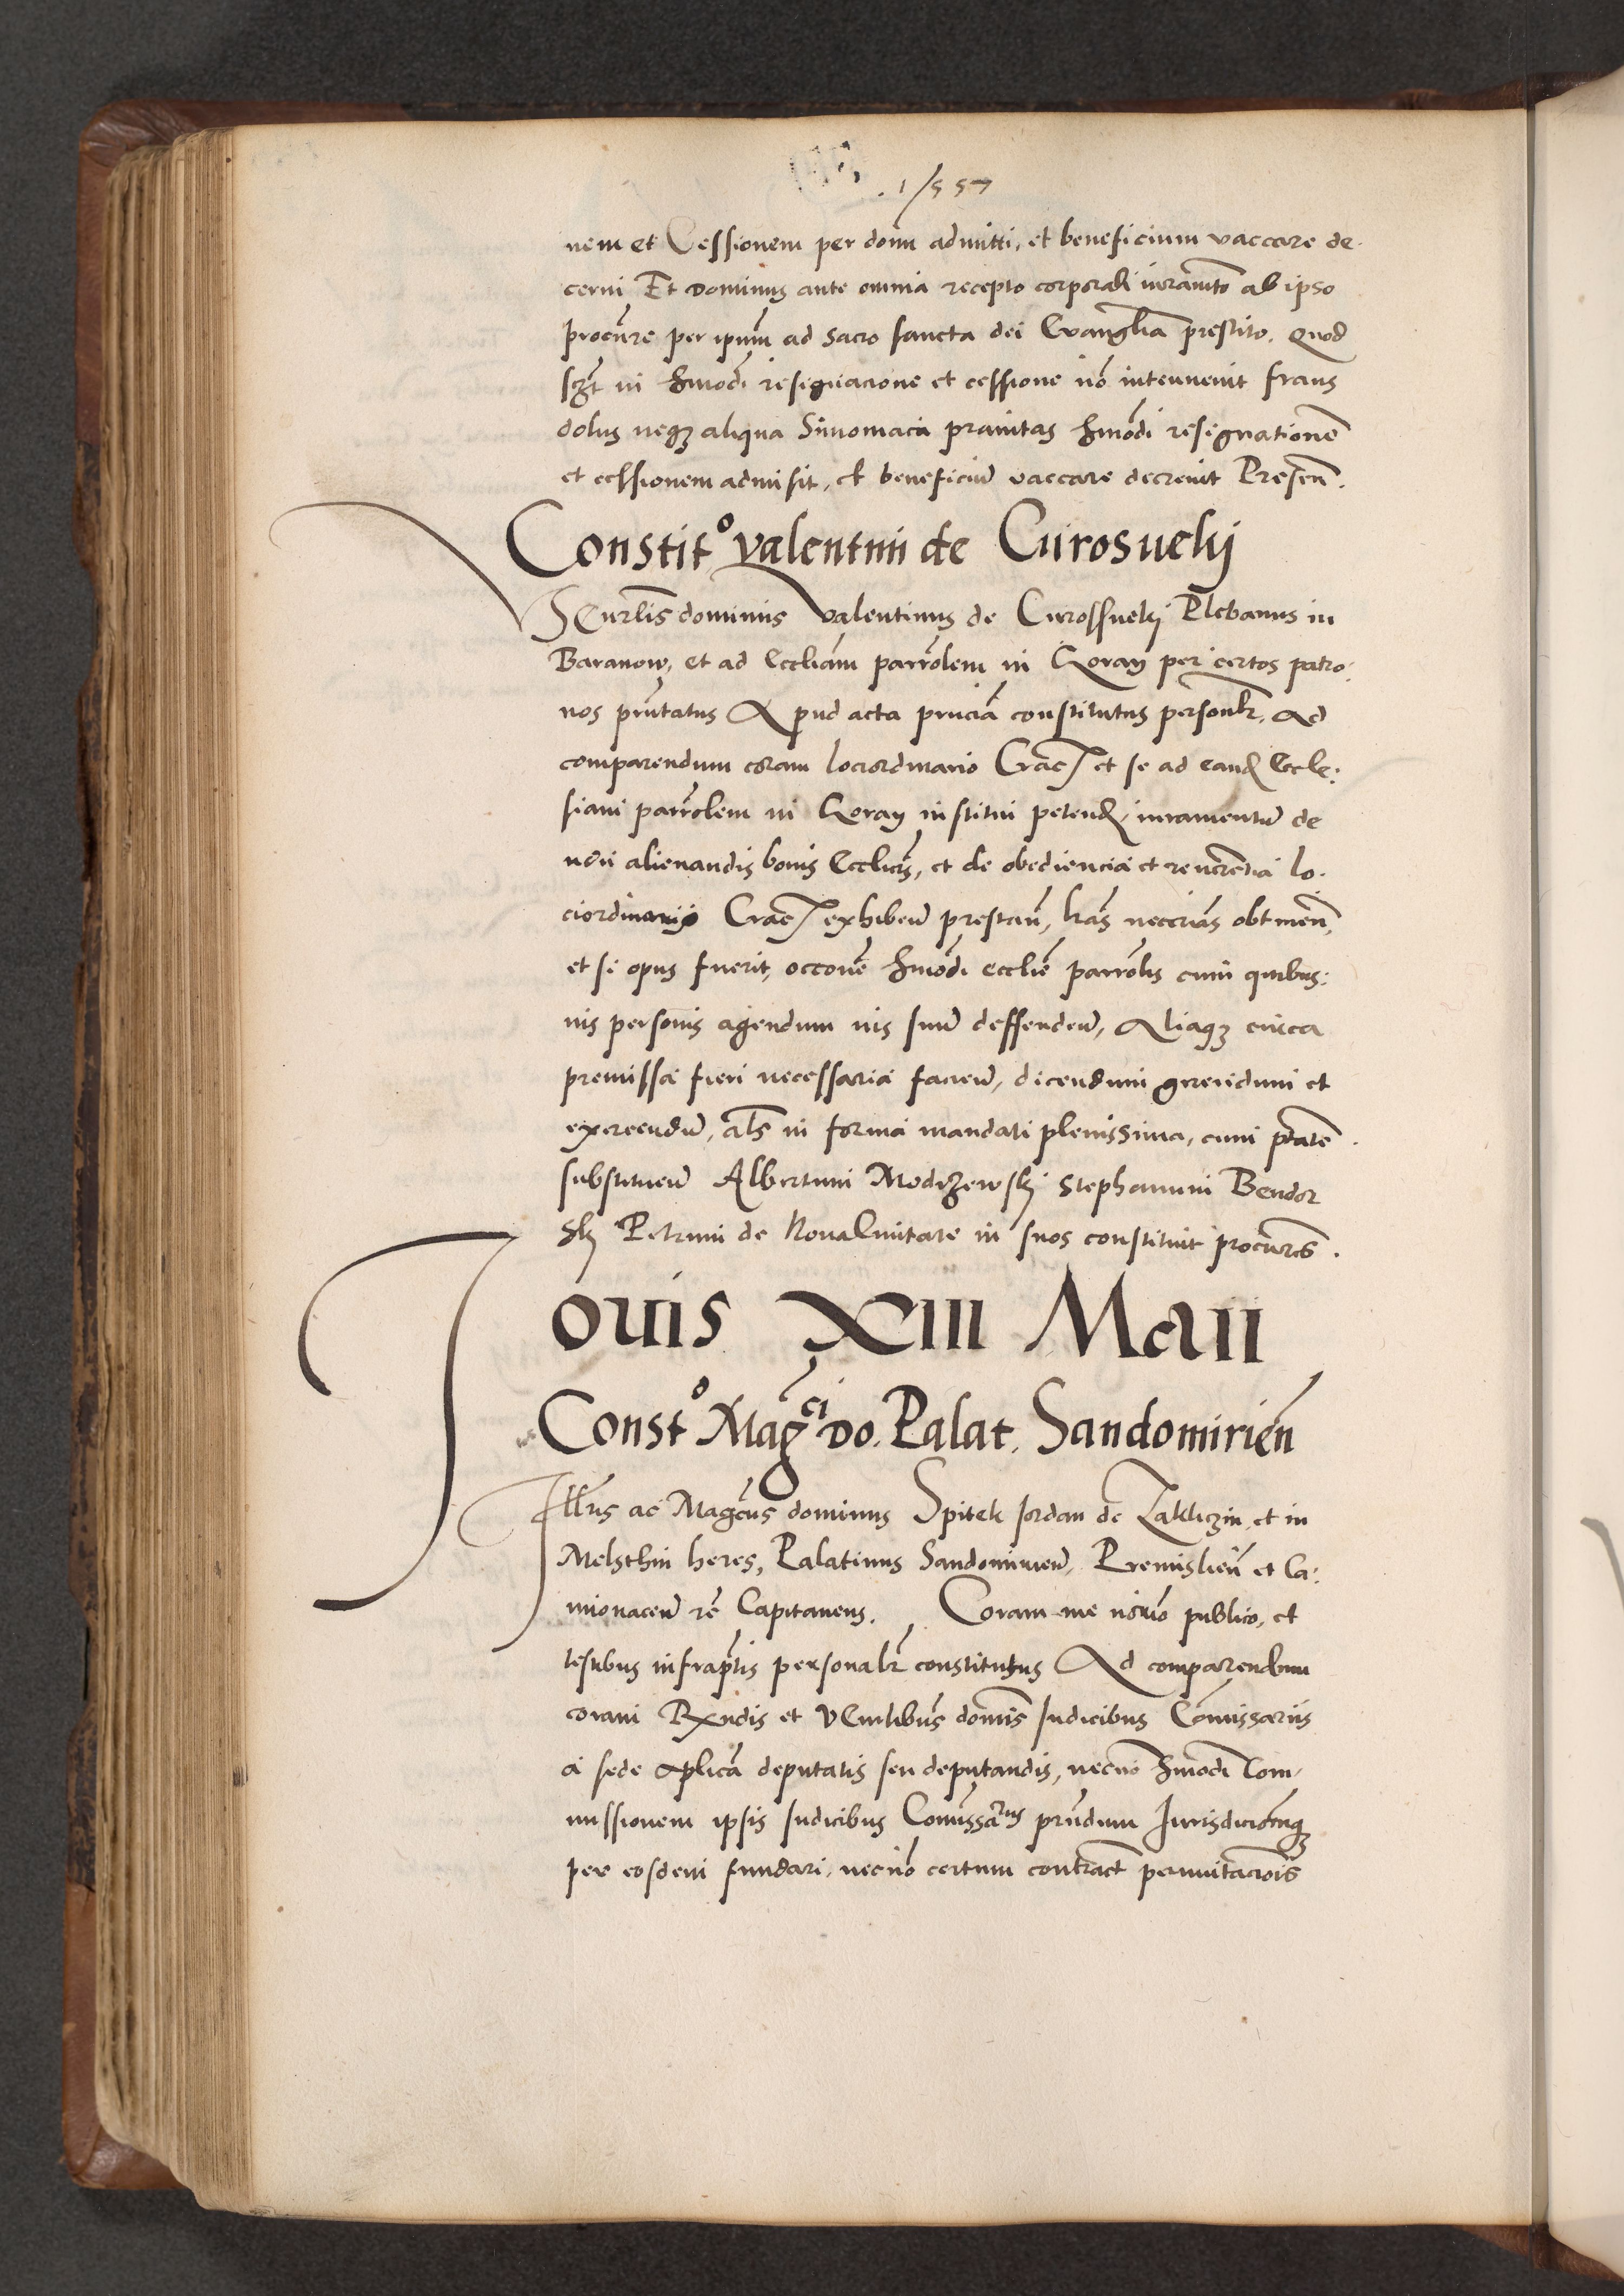 1557
nem et Cessionem per dom̃ admitti, et beneficium vaccare de-
cerni Et Dominus ante omnia recepto corporali iuramẽto ab ipso
procũre per ipm̃ ad sacro sancta dei Evanglia prestito. Quod
in hmõdi resignacione et cessione nõ interuenit fraus
dolus neqȝ aliqua Simoniaca prauitas hmõdi resignationẽ
et cessionem admisit, et beneficiũ vaccare decreuit Presen̄.
Constitº Valentini de Curosueki
dominus Valentinus de Curossueki Plebanus in
Baranow, et ad Eccliam parrõlem in Goray per certos patro-
nos prñtatus Apud acta pñcia constitutus personlr̃, Ad
comparendum coram lociordinario Crac̃ et se ad eand̃ Eccle-
siam parrõlem in Goray institui petend̃, iuramentũ de
nõn alienandis bonis Ecclicis, et de obediencia et reuerẽtia lo-
ciordinarijs Crac̃ exhibeñ prestañ, lr̃as neccrias obtineñ,
et si opus fuerit, occõne hmõdi ecclie parrõlis cum quibus-
uis personis agendum ius suũ deffendeñ, Aliaqȝ circa
premissa fieri necessaria facieñ, dicendum gerendum et
exercendũ, als̃ in forma mandati plenissima, cum ptatẽ
substitueñ Albertum Modrzewskj Stephanum Bendor
skj Petrum de Noua Ciuitate in suos constituit procũres.
Jouis XIII Maii
Constº Mag̃ci Do. Palat. Sandomirien̄
Illr̃is ac Mag̃cus dominus Spitek Jordan de Zakliczin, et in
Melsthin heres, Palatinus Sandomirieñ, Premislieñ et Ca-
mionaceñ rẽ Capitaneus. Coram me notrio publico, et
testibus infraptis personalr̃ constitutus Ad comparendum
coram Rx̃ndis et Vẽn̄libus domĩs Judicibus Cõmissariis
a sede Aplica deputatis seu deputandis, necnõ hmõdi Com-
missionem ipsis Judicibus Comissariis prñdum Jurisdicionemqȝ
per eosdem fundari, necnõ certum contract permutacõis